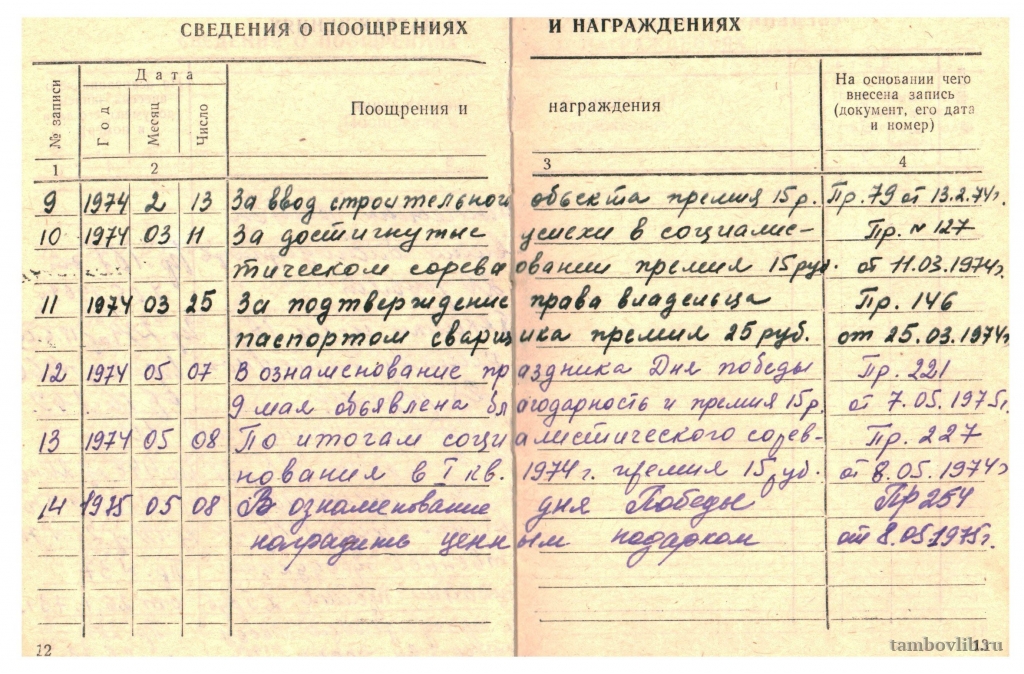 СВЕДЕНИЯ О ПООЩРЕНИЯХ И НАГРАЖДЕНИЯХ
№ записи
Дата
Год
Месяц
Число
Поощрения и награждения
На основании чего
внесена запись
(документ, его дата
и номер)
1 2 3 4
9 1974 2 13 За ввод строительного обьекта премия 15р. Пр. 79 от 13.2.74г.
10 1974 03 11 За достигнутые успехи в социалис- Пр. № 127
тическом соревновании премия 15 руб. от 11.03.1974г.
11 1974 03 25 За подтверждение права владельца Пр. 146
паспортом сварщика премия 25 руб. от 25.03.1974г
12 1974 05 07 В ознаменование праздника Дня победы Пр. 221
9 мая обьявлена благодарность и премия 15р. от 7.05.1975г.
13 1974 05 08 По итогам социалистического сорев- Пр. 227
нования в I кв. 1974 г. премия 15 руб. от 8.05.1974г
14 1975 05 08 В ознаменование дня Победы Пр 254
наградить ценным подарком от 8.05.1975г.
12 13
tambovlib.ru